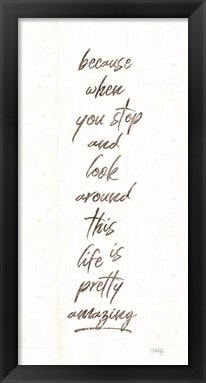 because
when
you stop
and
look
around
this
life is
pretty
amazing